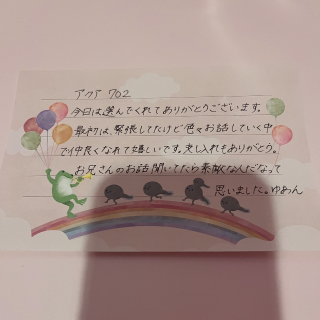 アクア 702
今日は、選んでくれてありがとうございます。
最初は、緊張してたけど色々お話していく中
で仲良くなれて嬉しいです。差し入れもありがとう。
お兄さんのお話聞いてたら素敵な人だなって
思いました。ゆあん